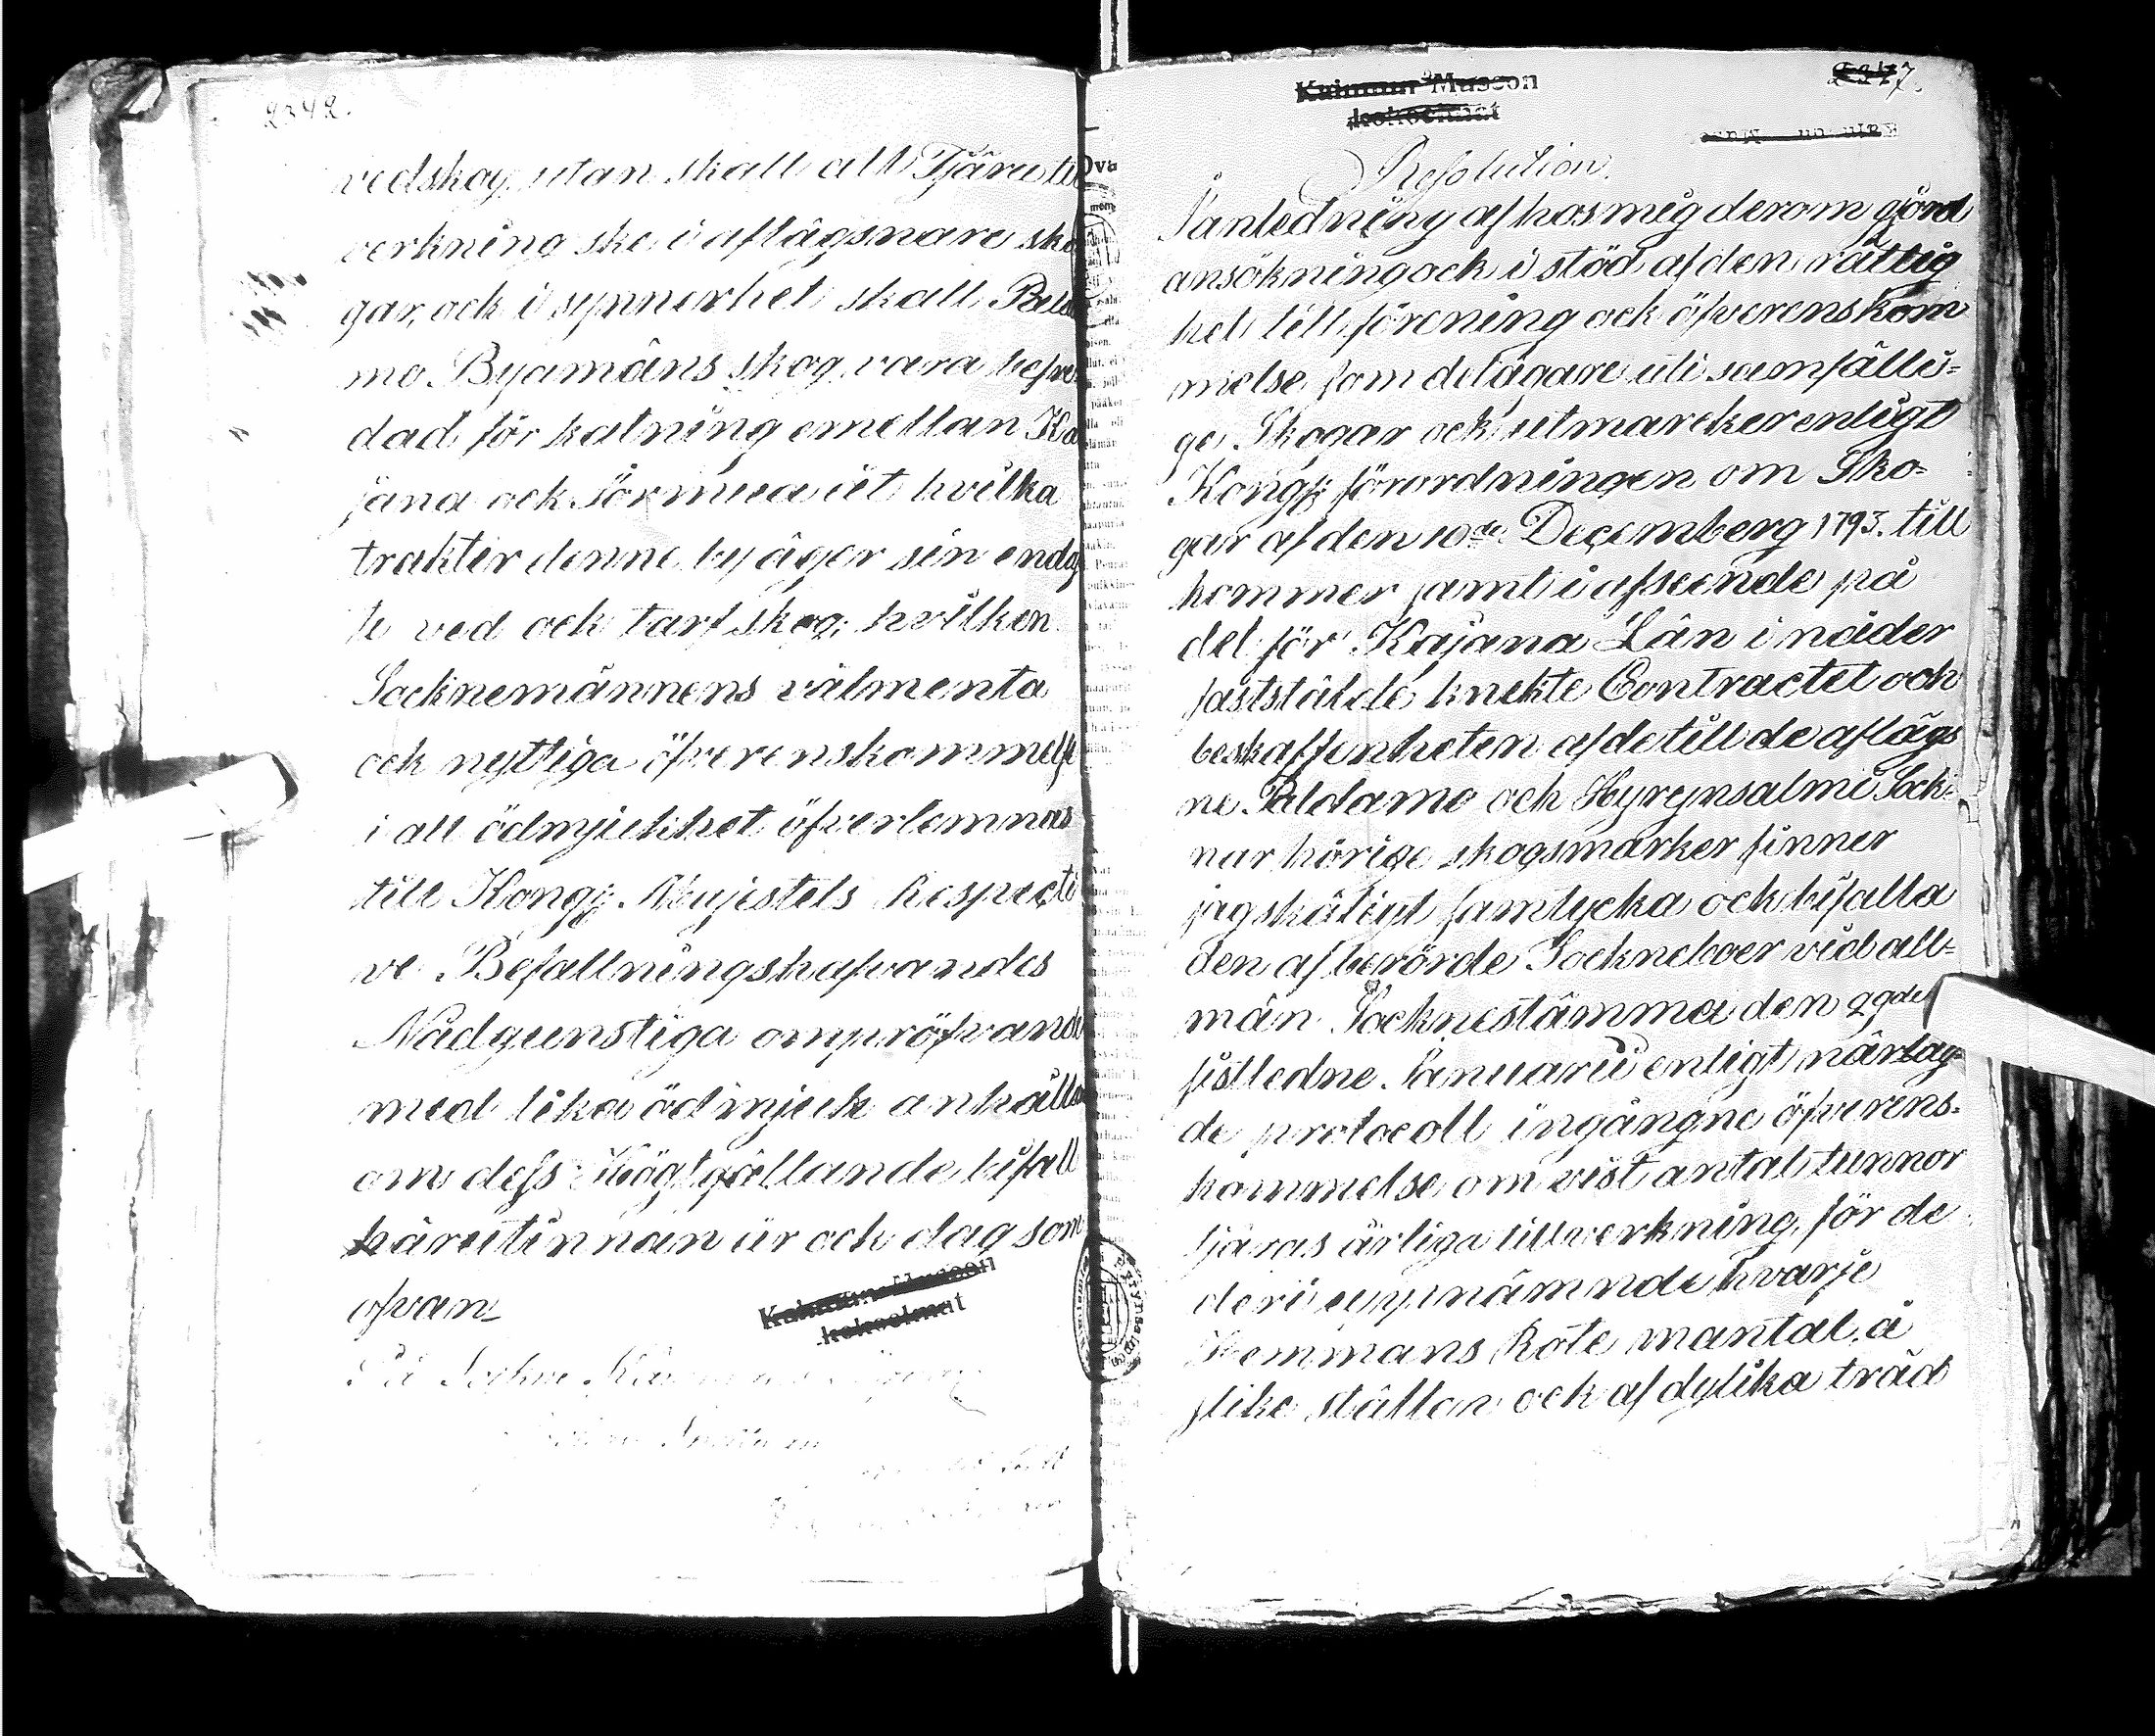 2342.
vedskog, utan skall allt Tjäru til
verkning ske i aflägsnare sko
gar, och i synnerhet skall Palda
mo Byamäns skog vara befre
dad för katning emellan Ka
jana och Sörmua ut hvilka
trakter denne by äger sin enda
te ved och tarf skog; hvilken
Socknemännens välmenta
och nyttiga öfverenskommelse
i all ödmjukhet öfverlemnas
till Kongl. Majestets Respecti
ve Befallningshafvandes
Nådgunstiga ompröfvande
med lika ödmjuk anhållan
om dess Högtgällande bifall
härutinnan år och dag som
ofvan
På Sockne
Kainuun Museon
kokoelmat
2347.
Resolution.
I anledning af hos mig derom gjord
ansökning och i stöd af den rättig
het till förening och öfverenskom
melse som delägare uti samfälli-
ge Skogar och utmarcker enligt
Kongl. förordningen om Sko-
gar af den 10de December 1793. till
kommer samt i afseende på
det för Kajana Län i nåder
fastställde knekte Contractet och
beskaffenheten af de till de aflägs
ne Paldamo och Hyrynsalmi Sock-
nar hörige skogsmarker finner
jag skäligt samtycka och bifalla
den af berörde Sockneboer vid all-
män Socknestämma den 29de
sistledne Januarii enligt närlag-
de protocoll ingångne öfverens-
kommelse om vist antal tunnor
tjäras årliga tillverkning, för de
deri uppnämnde hvarje
Hemmans Rote mantal, å
slike ställen och af dylika träd